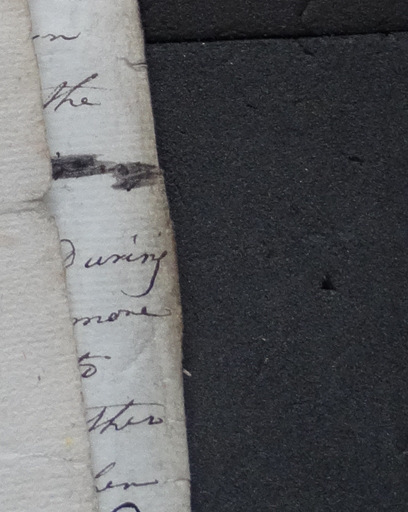 the
During
more
to
ther
hen